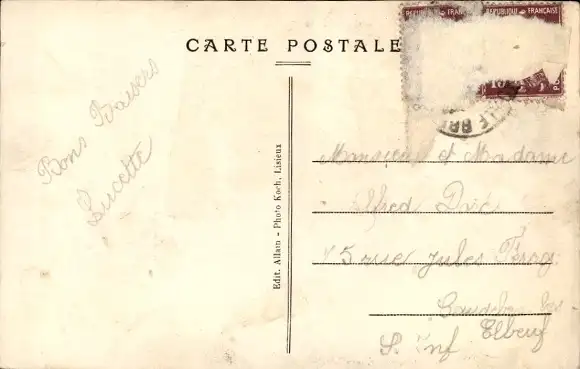 REPUBLIQUE FRANÇAISE REPUBLIQUE FRANÇAISE
CARTE POSTALE
15
Bons Baisers
Lucette
Edit. Allain - Photo Koch, Lisieux
Monsieur et Madame
Alfred
15 rue Jules
Caudebec les
Elbeuf
S. Inf